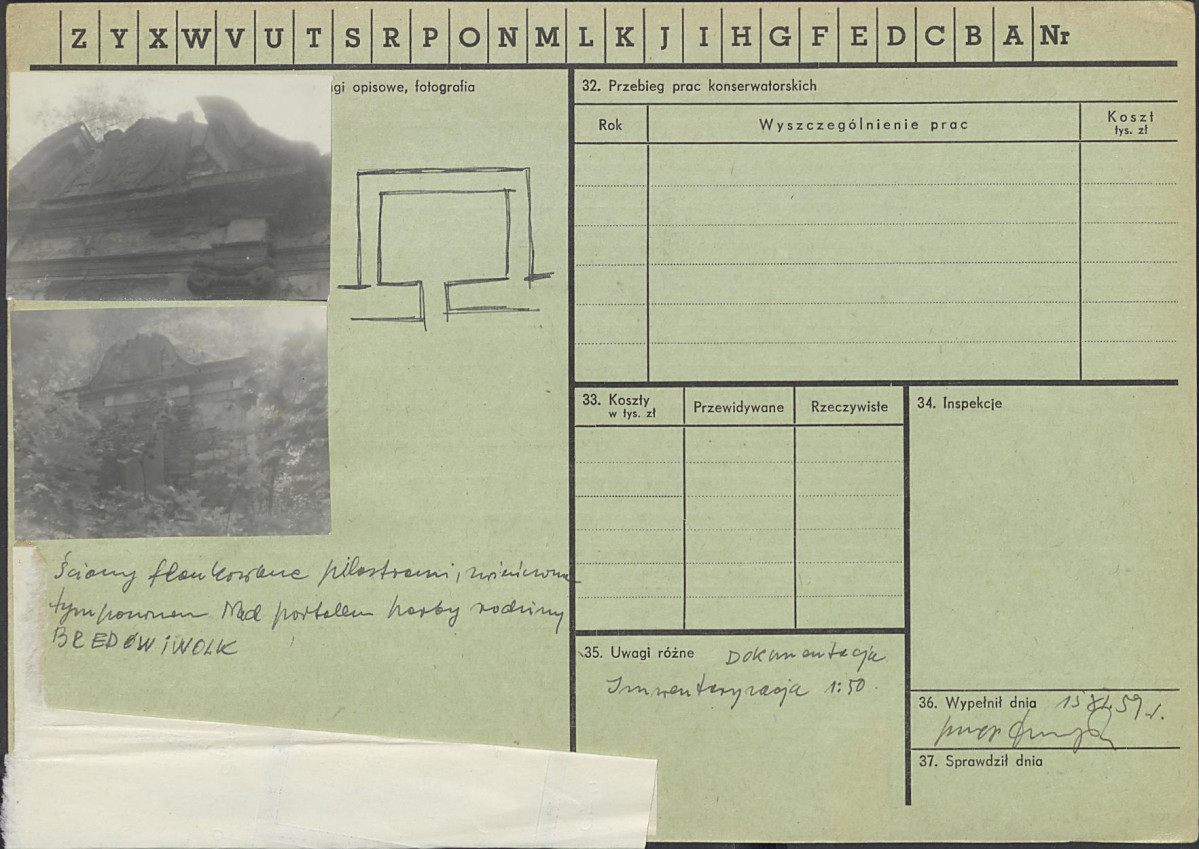 Z Y X W V U T S R P O N M L K J I H G F E D C B A Nr
gi opisowe, fotografia
Ściany flankowane pilastrami, zwieńczone
tympanonem Nad portalem herby rodziny
BREDÓW i WOLK
32. Przebieg prac konserwatorskich
Rok Wyszczególnienie prac Koszt
tys. zł
33. Koszty
w tys. zł
Przewidywane Rzeczywiste
34. Inspekcje
35. Uwagi różne Dokumentacja
Inwentaryzacja 1:50.
36. Wypełnił dnia 59 r.
mgr
37. Sprawdził dnia